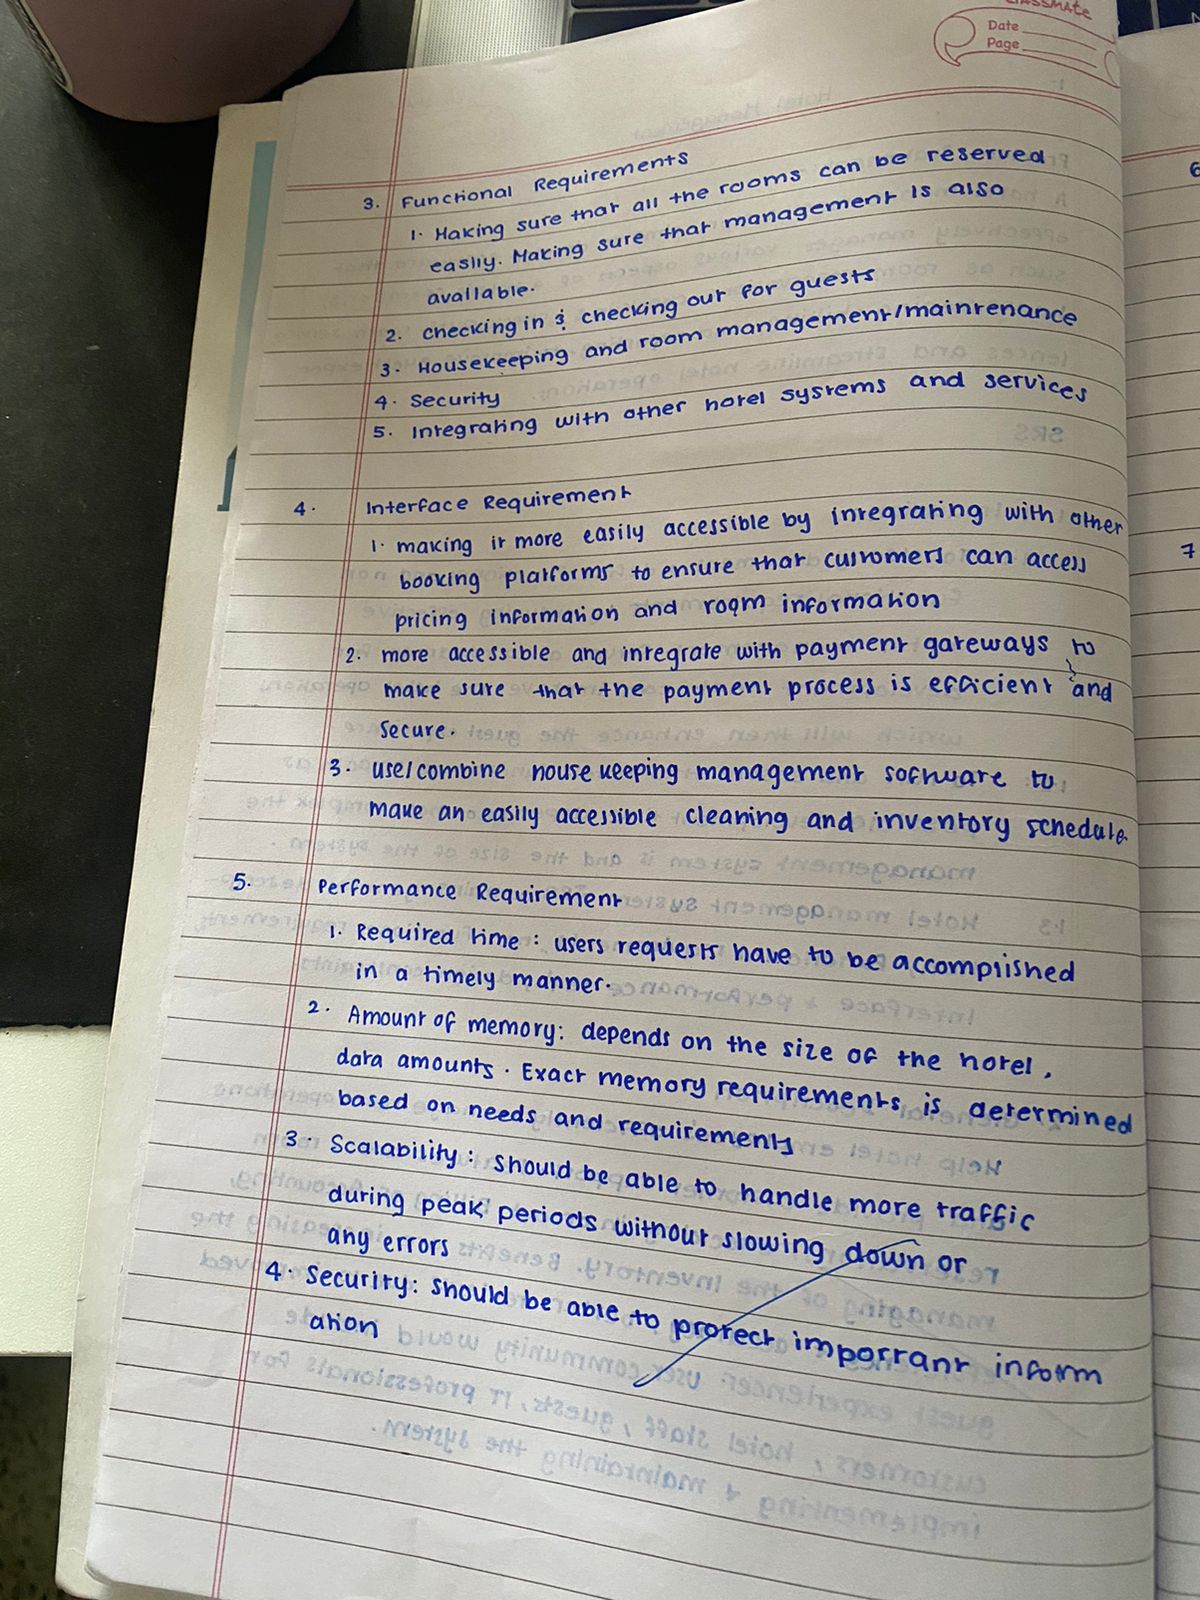 classmate
Date
Page
3. Functional Requirements
1. Making sure that all the rooms can be reserved
easily. Making sure that management is also
available.
2. checking in & checking out for guests
3. Housekeeping and room management/maintenance
4. Security
5. Integrating with other hotel systems and services
4. Interface Requirement
1. making it more easily accessible by integrating with other
booking platforms to ensure that customers can access
pricing information and room information
2. more accessible and integrate with payment gateways to
make sure that the payment process is efficient and
secure.
3. use/combine housekeeping management software to
make an easily accessible cleaning and inventory schedule.
5. Performance Requirement
1. Required time : users requests have to be accomplished
in a timely manner.
2. Amount of memory: depends on the size of the hotel,
data amounts. Exact memory requirements is determined
based on needs and requirements
3. Scalability : should be able to handle more traffic
during peak periods without slowing down or
any errors
4. Security: should be able to protect important inform
ation
6
7